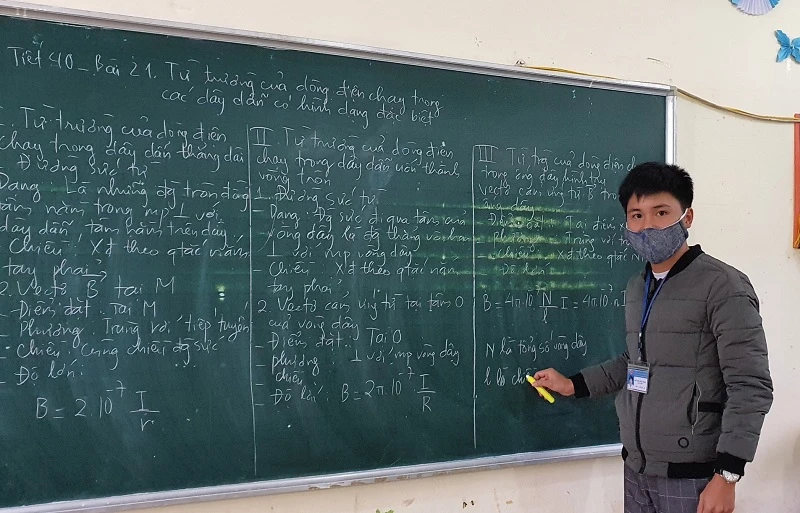 Tiết 40 - Bài 21. Từ trường của dòng điện chạy trong
các dây dẫn có hình dạng đặc biệt
I. Từ trường của dòng điện
chạy trong dây dẫn thẳng dài
Đường sức từ
Dạng: Là những đg tròn đồng
tâm nằm trong mp ⊥ với
dây dẫn, tâm nằm trên dây
- Chiều: Xđ theo qtắc nắm
tay phải
2. Vectơ B tại M
- Điểm đặt: Tại M
Phương: Trùng với tiếp tuyến
- Chiều: Cùng chiều đg sức
- Độ lớn:
B = 2.10⁻⁷ I/r
II. Từ trường của dòng điện
chạy trong dây dẫn uốn thành
vòng tròn
1. Đường sức từ
- Dạng: Đg sức đi qua tâm của
vòng dây là đg thẳng vô hạn
⊥ với mp vòng dây
- Chiều: Xđ theo qtắc nắm
tay phải
2. Vectơ cảm ứng từ tại tâm O
của vòng dây
- Điểm đặt: Tại O
- phương: ⊥ với mp vòng dây
- chiều
- Độ lớn: B = 2π.10⁻⁷ I/R
III. Từ trg của dòng điện ch
trong ống dây hình trụ
Vectơ cảm ứng từ B trong
ống dây
Điểm đặt: Tại điểm
phương: Trùng với tr
- chiều: Xđ theo qtắc nắm
- Độ lớn:
B = 4π.10⁻⁷ N/l I = 4π.10⁻⁷ n I
N là tổng số vòng dây
l là ch